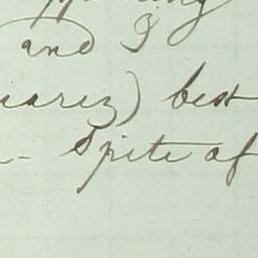 and I
iarez) best
- Spite of